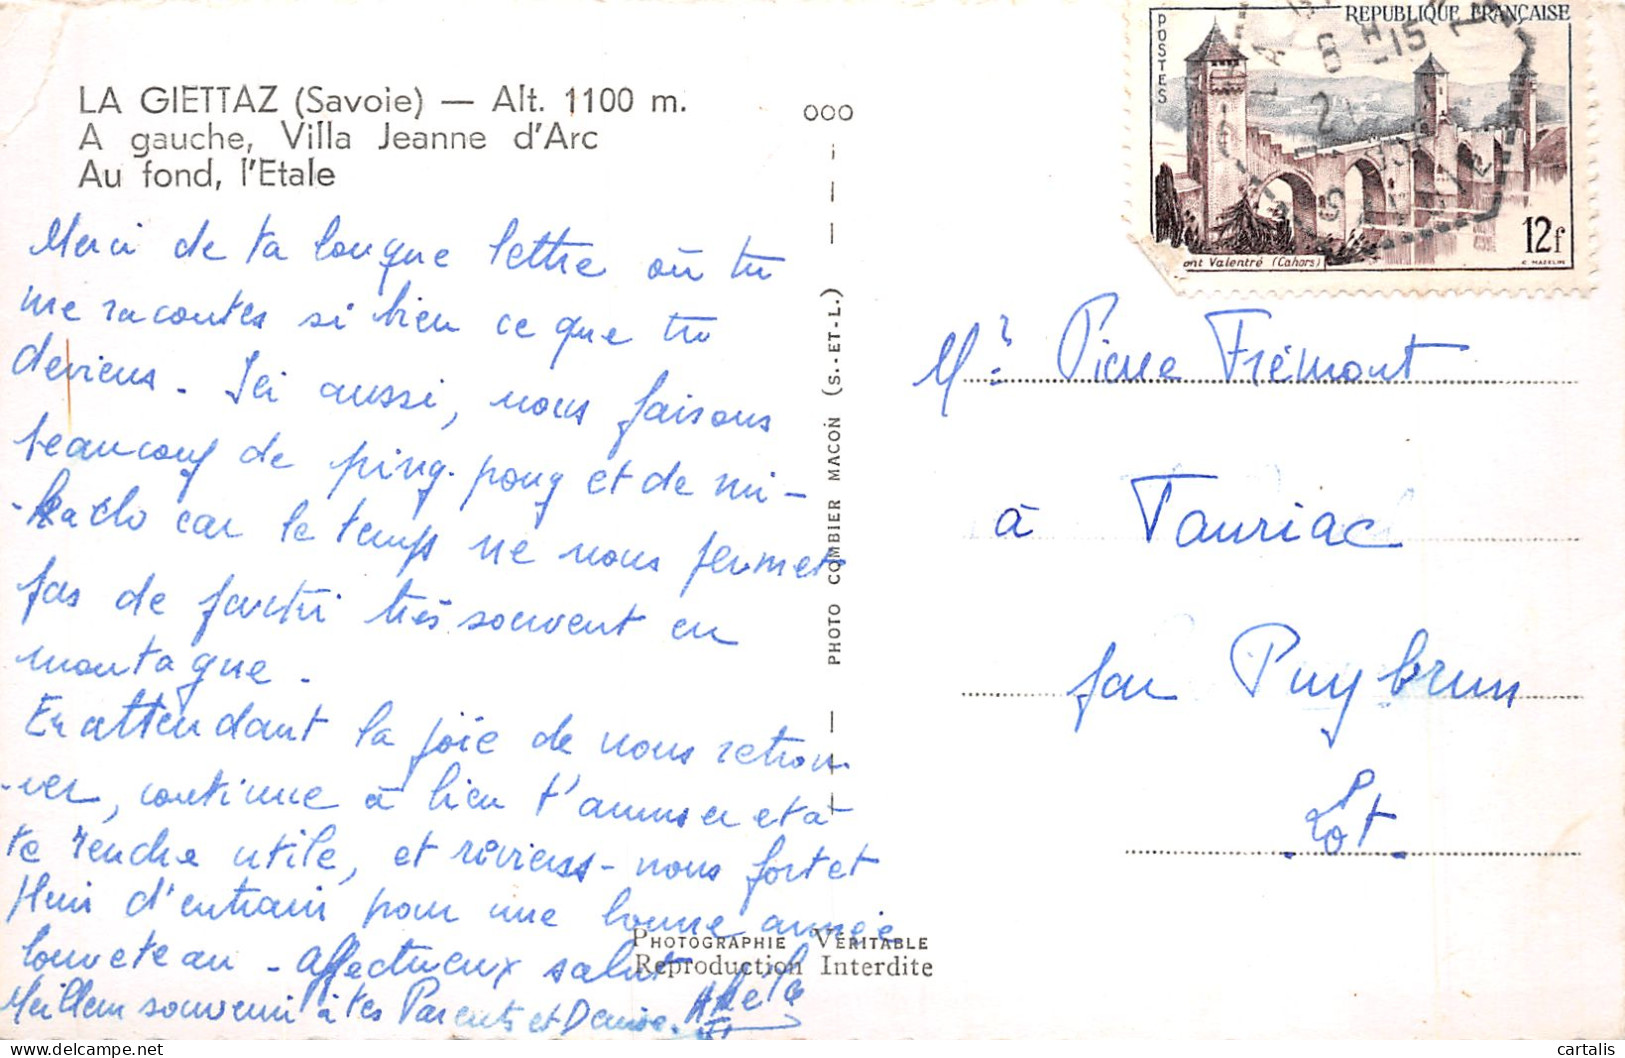 LA GIETTAZ (Savoie) — Alt. 1100 m.
A gauche, Villa Jeanne d'Arc
Au fond, l'Etale
Merci de ta longue lettre où tu
me racontes si bien ce que tu
deviens. Ici aussi, nous faisons
beaucoup de ping-pong et de mi-
-kado car le temps ne nous permet
pas de partir très souvent en
montagne.
En attendant la joie de nous retrou
-ver, continue à bien t'amuser et à
te rendre utile, et reviens-nous fort et
plein d'entrain pour une bonne année
louveteau - affectueux salut
Meilleur souvenir à tes Parents et Denise.
000
PHOTO COMBIER MACON (S.-ET-L.)
PHOTOGRAPHIE VÉRITABLE
Reproduction Interdite
POSTES
REPUBLIQUE FRANÇAISE
ont Valentré (Cahors)
12f
C. MAZELIN
Mr Pierre Frémont
à Tauriac
par Puybrun
Lot
cartalis